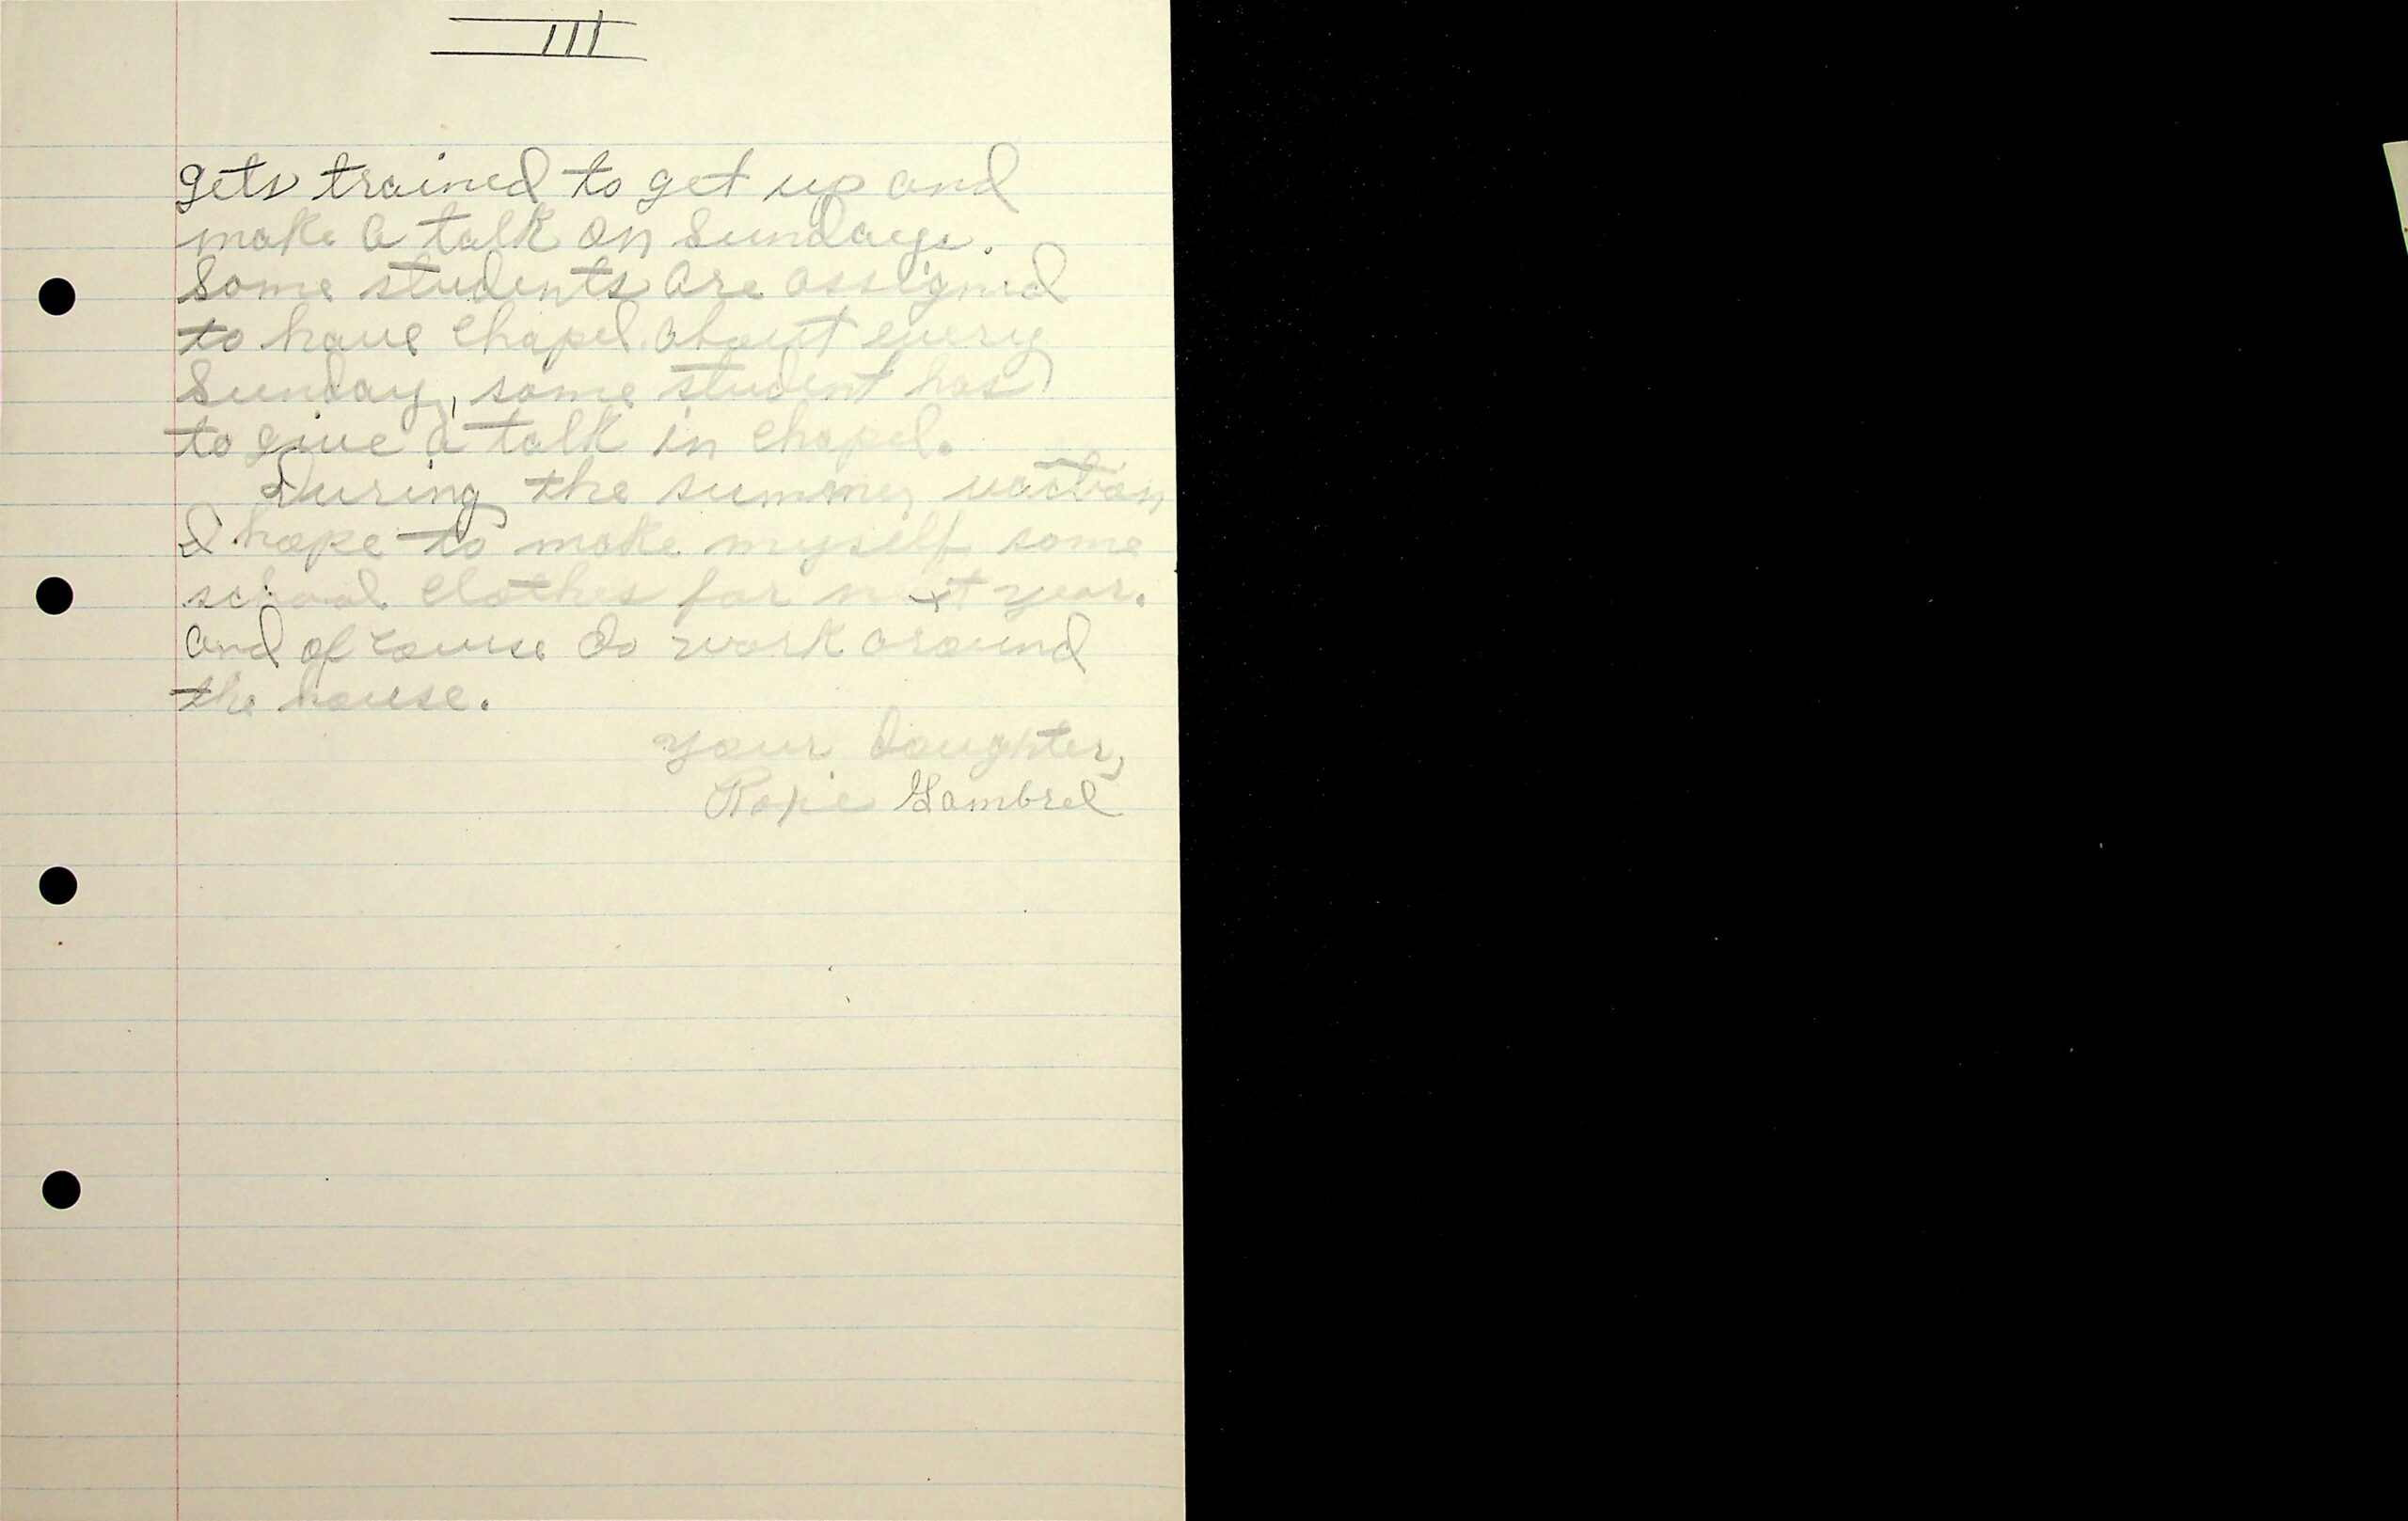 III
gets trained to get up and
make a talk on Sundays.
Some students are assigned
to have chapel about every
Sunday, some student has
to give a talk in chapel.
During the summer vaction
I hope to make myself some
school clothes for next year.
and of course do work around
the house.
your daughter,
Gambrel